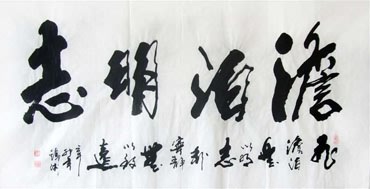 澹泊明志
非
澹泊
無
以明
志
非
寧靜
無
以致
遠